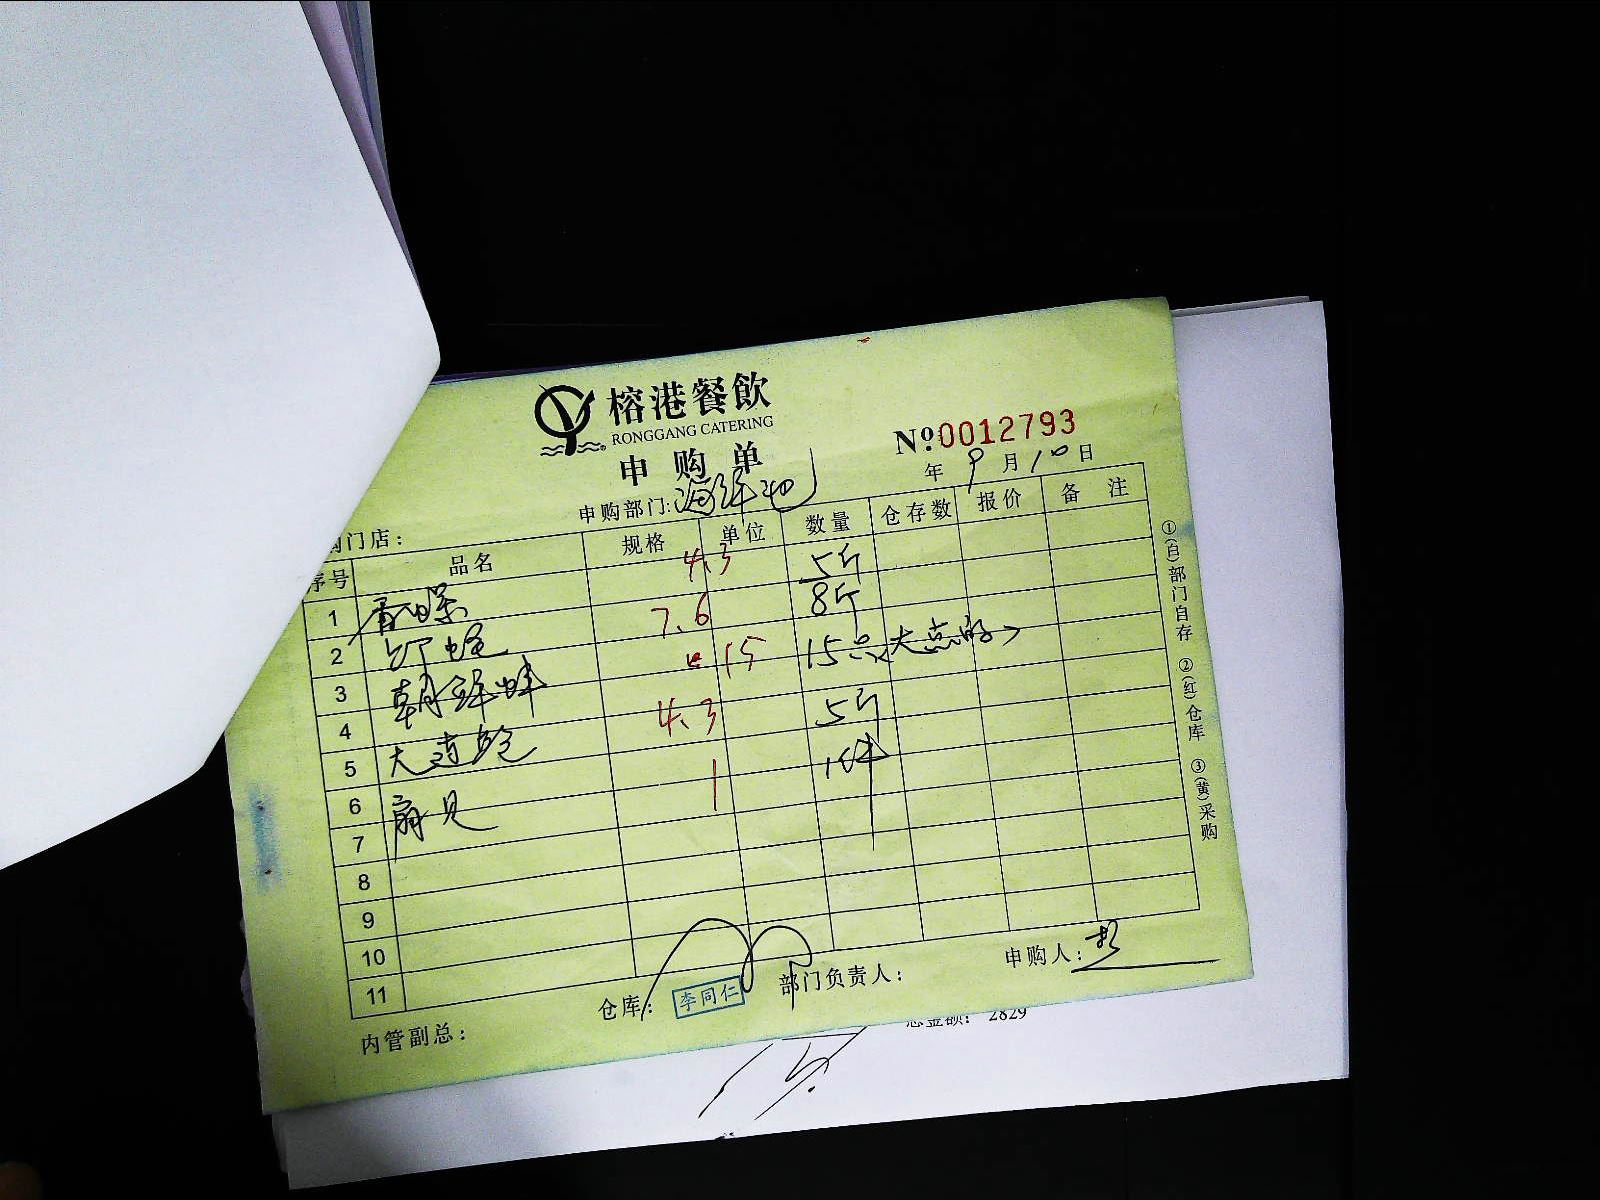 榕港餐飲
RONGGANG CATERING
申购单
№ 0012793
年 9 月 10 日
申购部门: 海鲜池
门店:
序号 品名 规格 单位 数量 仓存数 报价 备注
1 香螺 4.3 5斤
2 7.6 8斤
3 15 15只(大点的)
4 4.3 5斤
5 大连鲍 1 1件
6 扇贝
7
8
9
10
11
①(白)部门自存 ②(红)仓库 ③(黄)采购
仓库: 李同仁 部门负责人: 申购人:
内管副总:
总金额: 2829